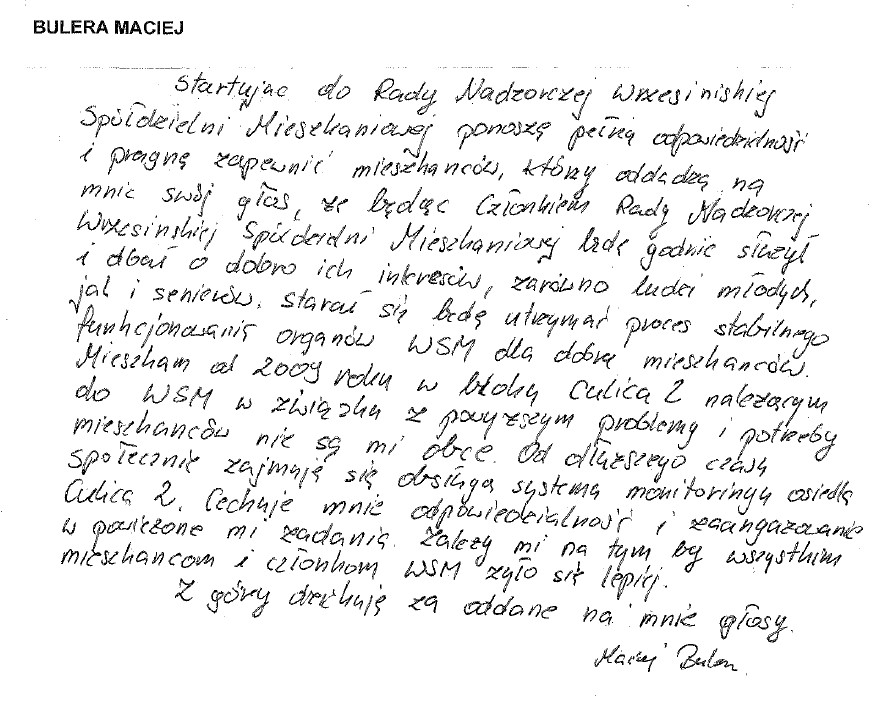 BULERA MACIEJ
Startując do Rady Nadzorczej Wrzesinskiej
Spółdzielni Mieszkaniowej ponoszę pełną odpowiedzidność
i pragnę zapewnić mieszkanców, którzy oddadzą na
mnie swój głos, ze będąc Członkiem Rady Nadzorczej
Wrzesinskiej Spółdzidni Mieszkaniowej będę godnie służył
i dbał o dobro ich interesów, zarówno ludzi młodych,
jak i senierów. starać się będę utrzymać proces stabilnego
funkcjonowania organów WSM dla dobra mieszkanców.
Mieszkam od 2009 roku w bloku Culica 2 nalezącym
do WSM w związku z powyzszym problemy i potrzeby
mieszkanców nie są mi obce. Od dłuzszego czasu
społecznie zajmuję się obsługą systemu monitoringu osiedla
Culica 2. Cechuje mnie odpowiedzialność i zaangazowanie
w powiezone mi zadania. Zalezy mi na tym by wszystkim
mieszkancom i członkom WSM zyło się lepiej.
Z góry dziekuję za oddane na mnie głosy.
Maciej Bulera